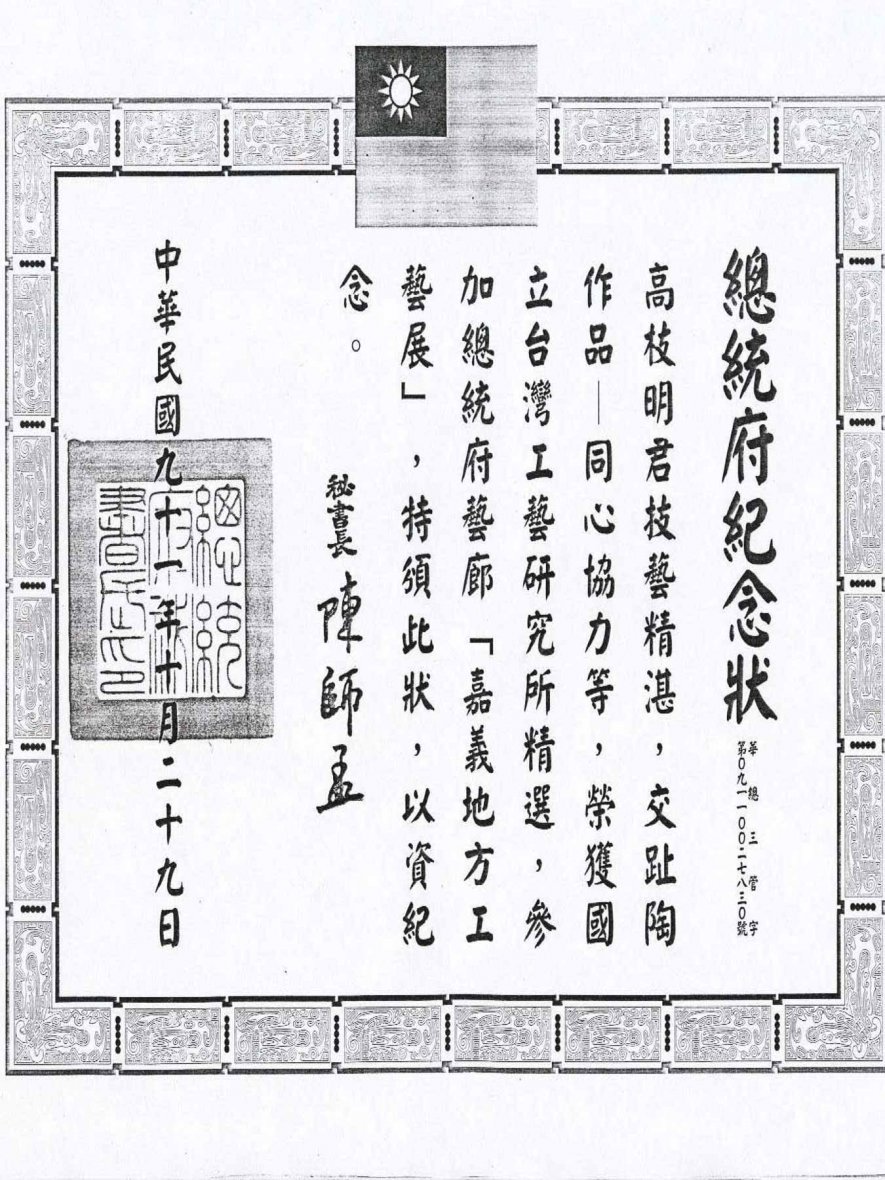 總統府紀念狀
華總三管字
第0九一一00二七八三0號
高枝明君技藝精湛，交趾陶
作品—同心協力等，榮獲國
立台灣工藝研究所精選，參
加總統府藝廊「嘉義地方工
藝展」，特頒此狀，以資紀
念。
秘書長 陳師孟
中華民國九十一年十月二十九日
總統府秘書長印